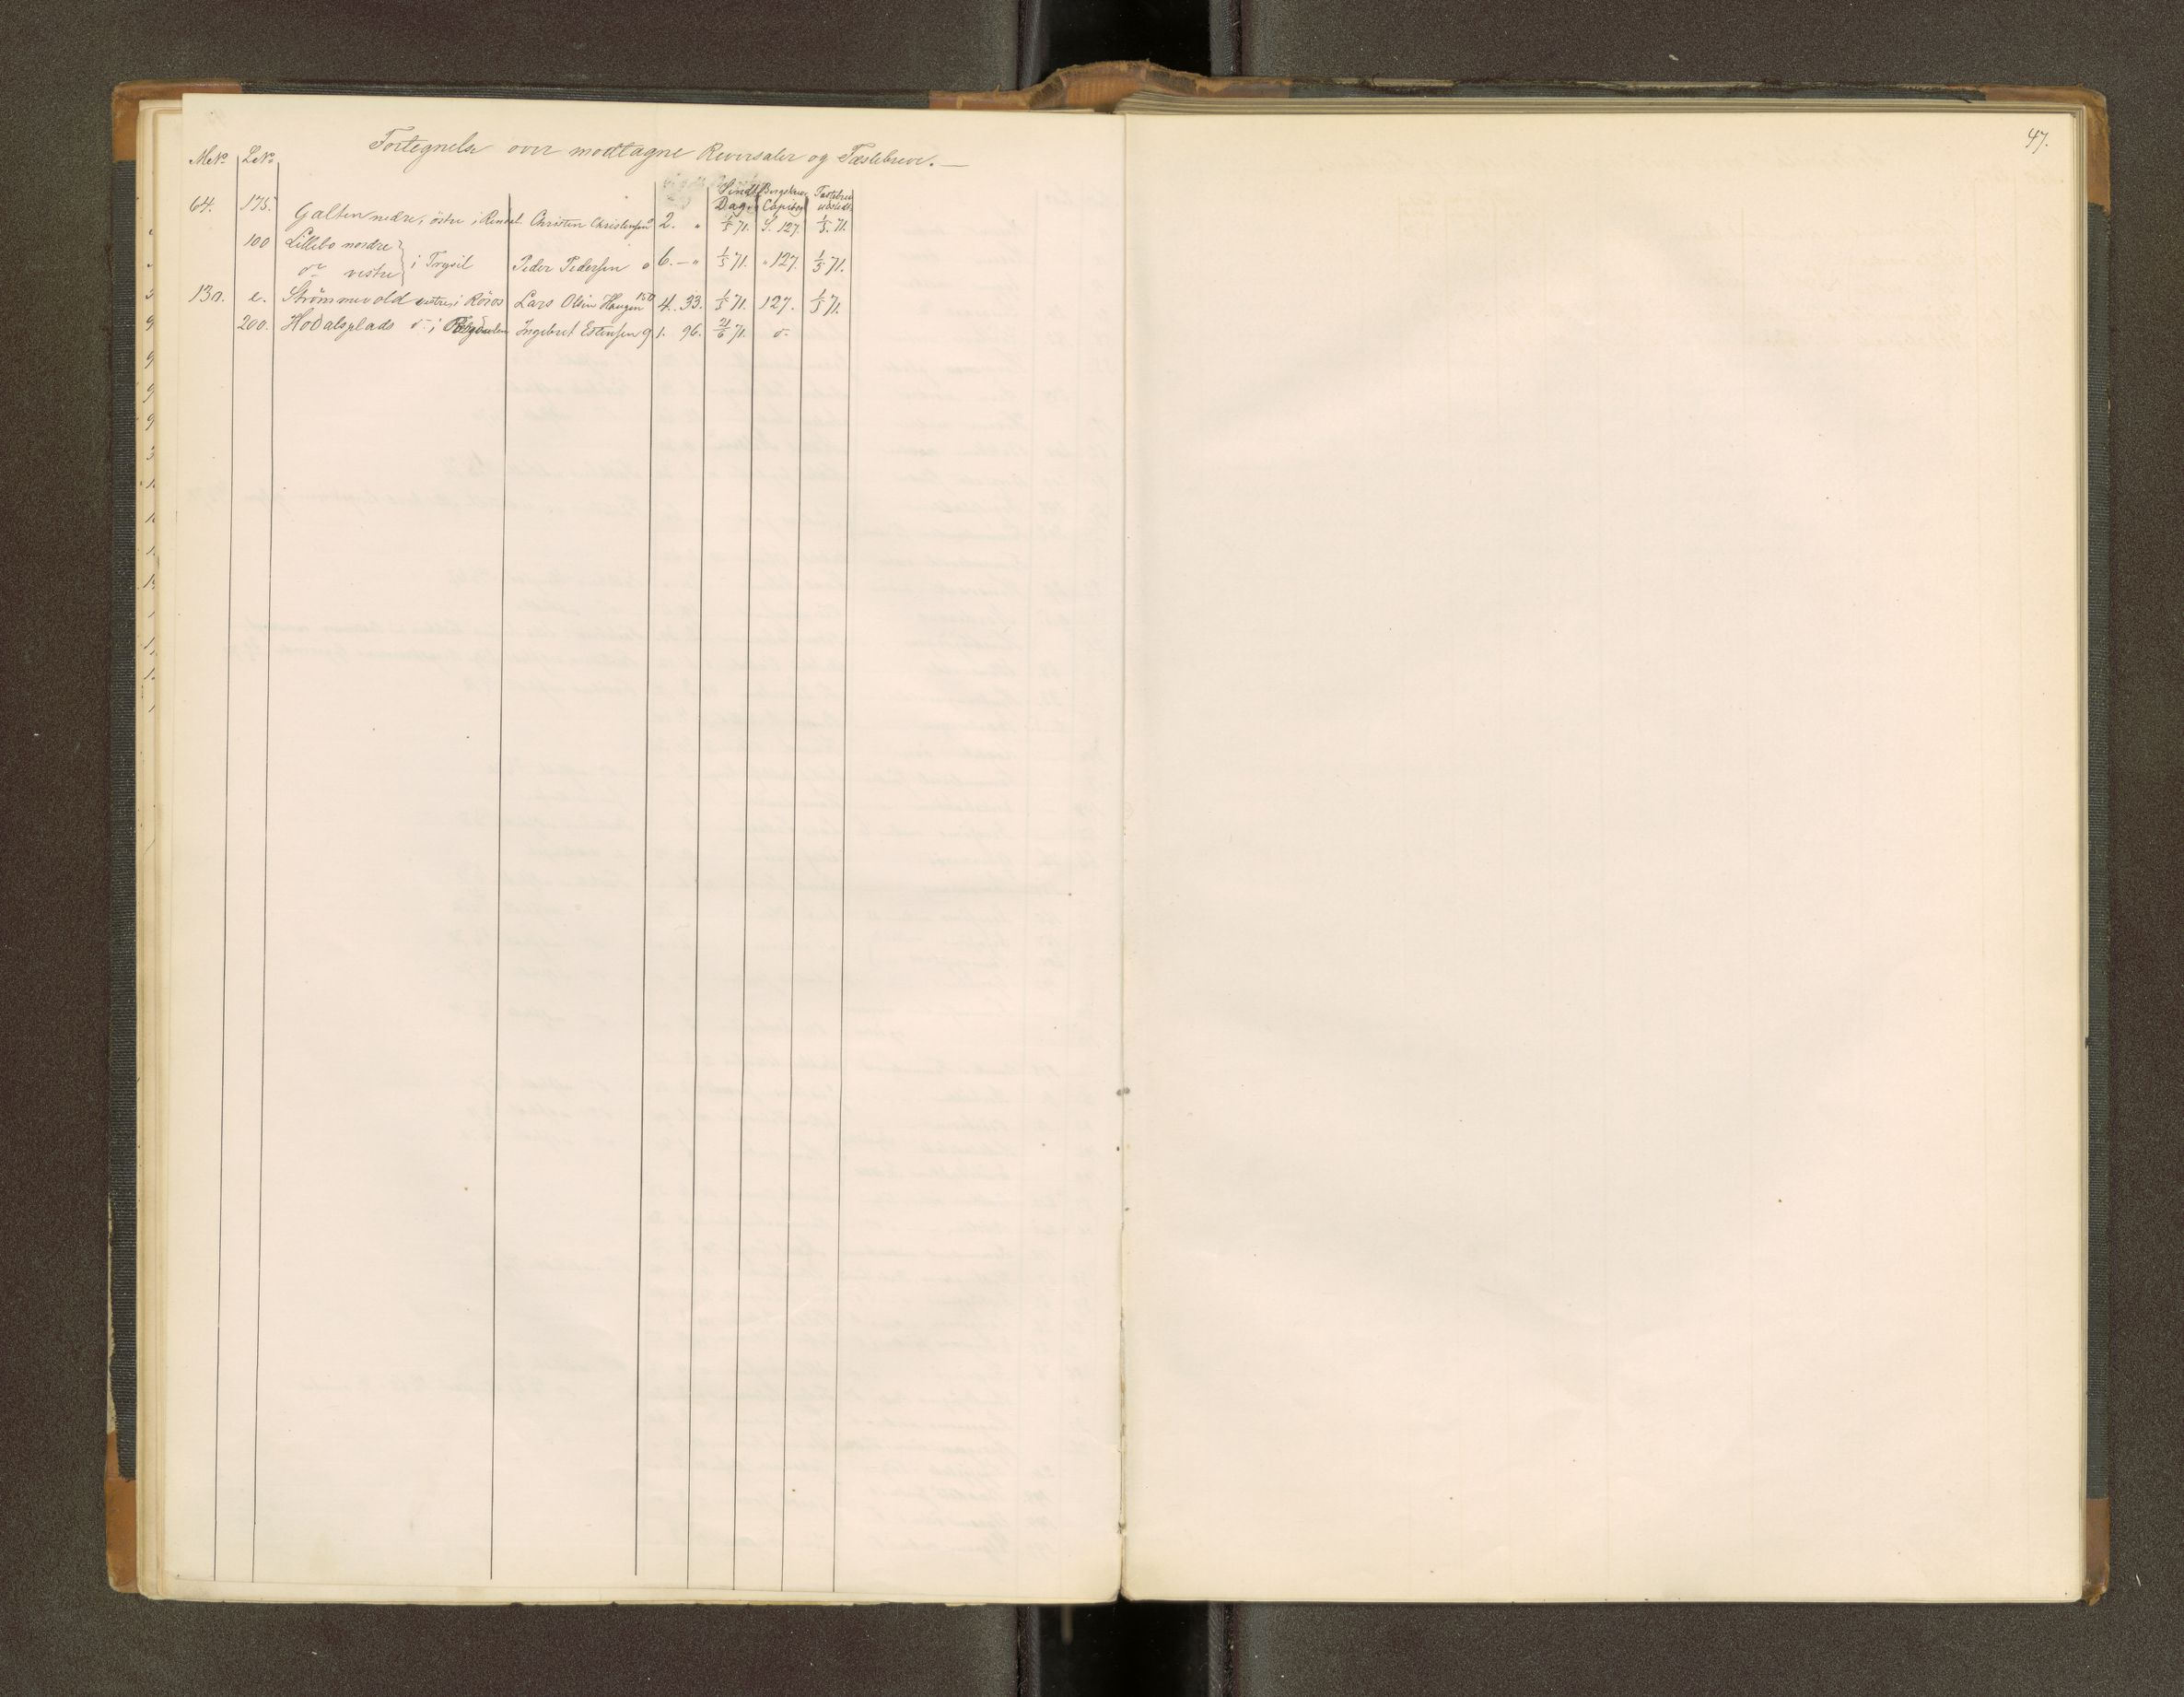 47.
Fortegnelse over modtagne Reversaler og Fæstebreve. —
M.No. L.No. Sendt Dag. Copibog
64. 175. Galten nedre, östre i Rendal. Christen Christensen 2. " 1/5 71. S. 127. 1/5. 71.
100 Lillebo nordre
do vestre } i Trysil Peder Pedersen 6. — " 1/5 71. " 127. 1/5 71.
130. e. Strömmevold vestre i Röros Lars Olsen Haugen 4. 33. 1/5 71. 127. 1/5 71.
200. Hodalsplads do i Ingebret Estensen 1. 96. 21/6 71. do